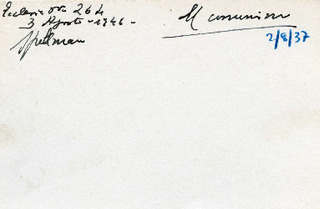 264
3 Agosto - 1946 -
Spellman
Il comunismo
2/8/37